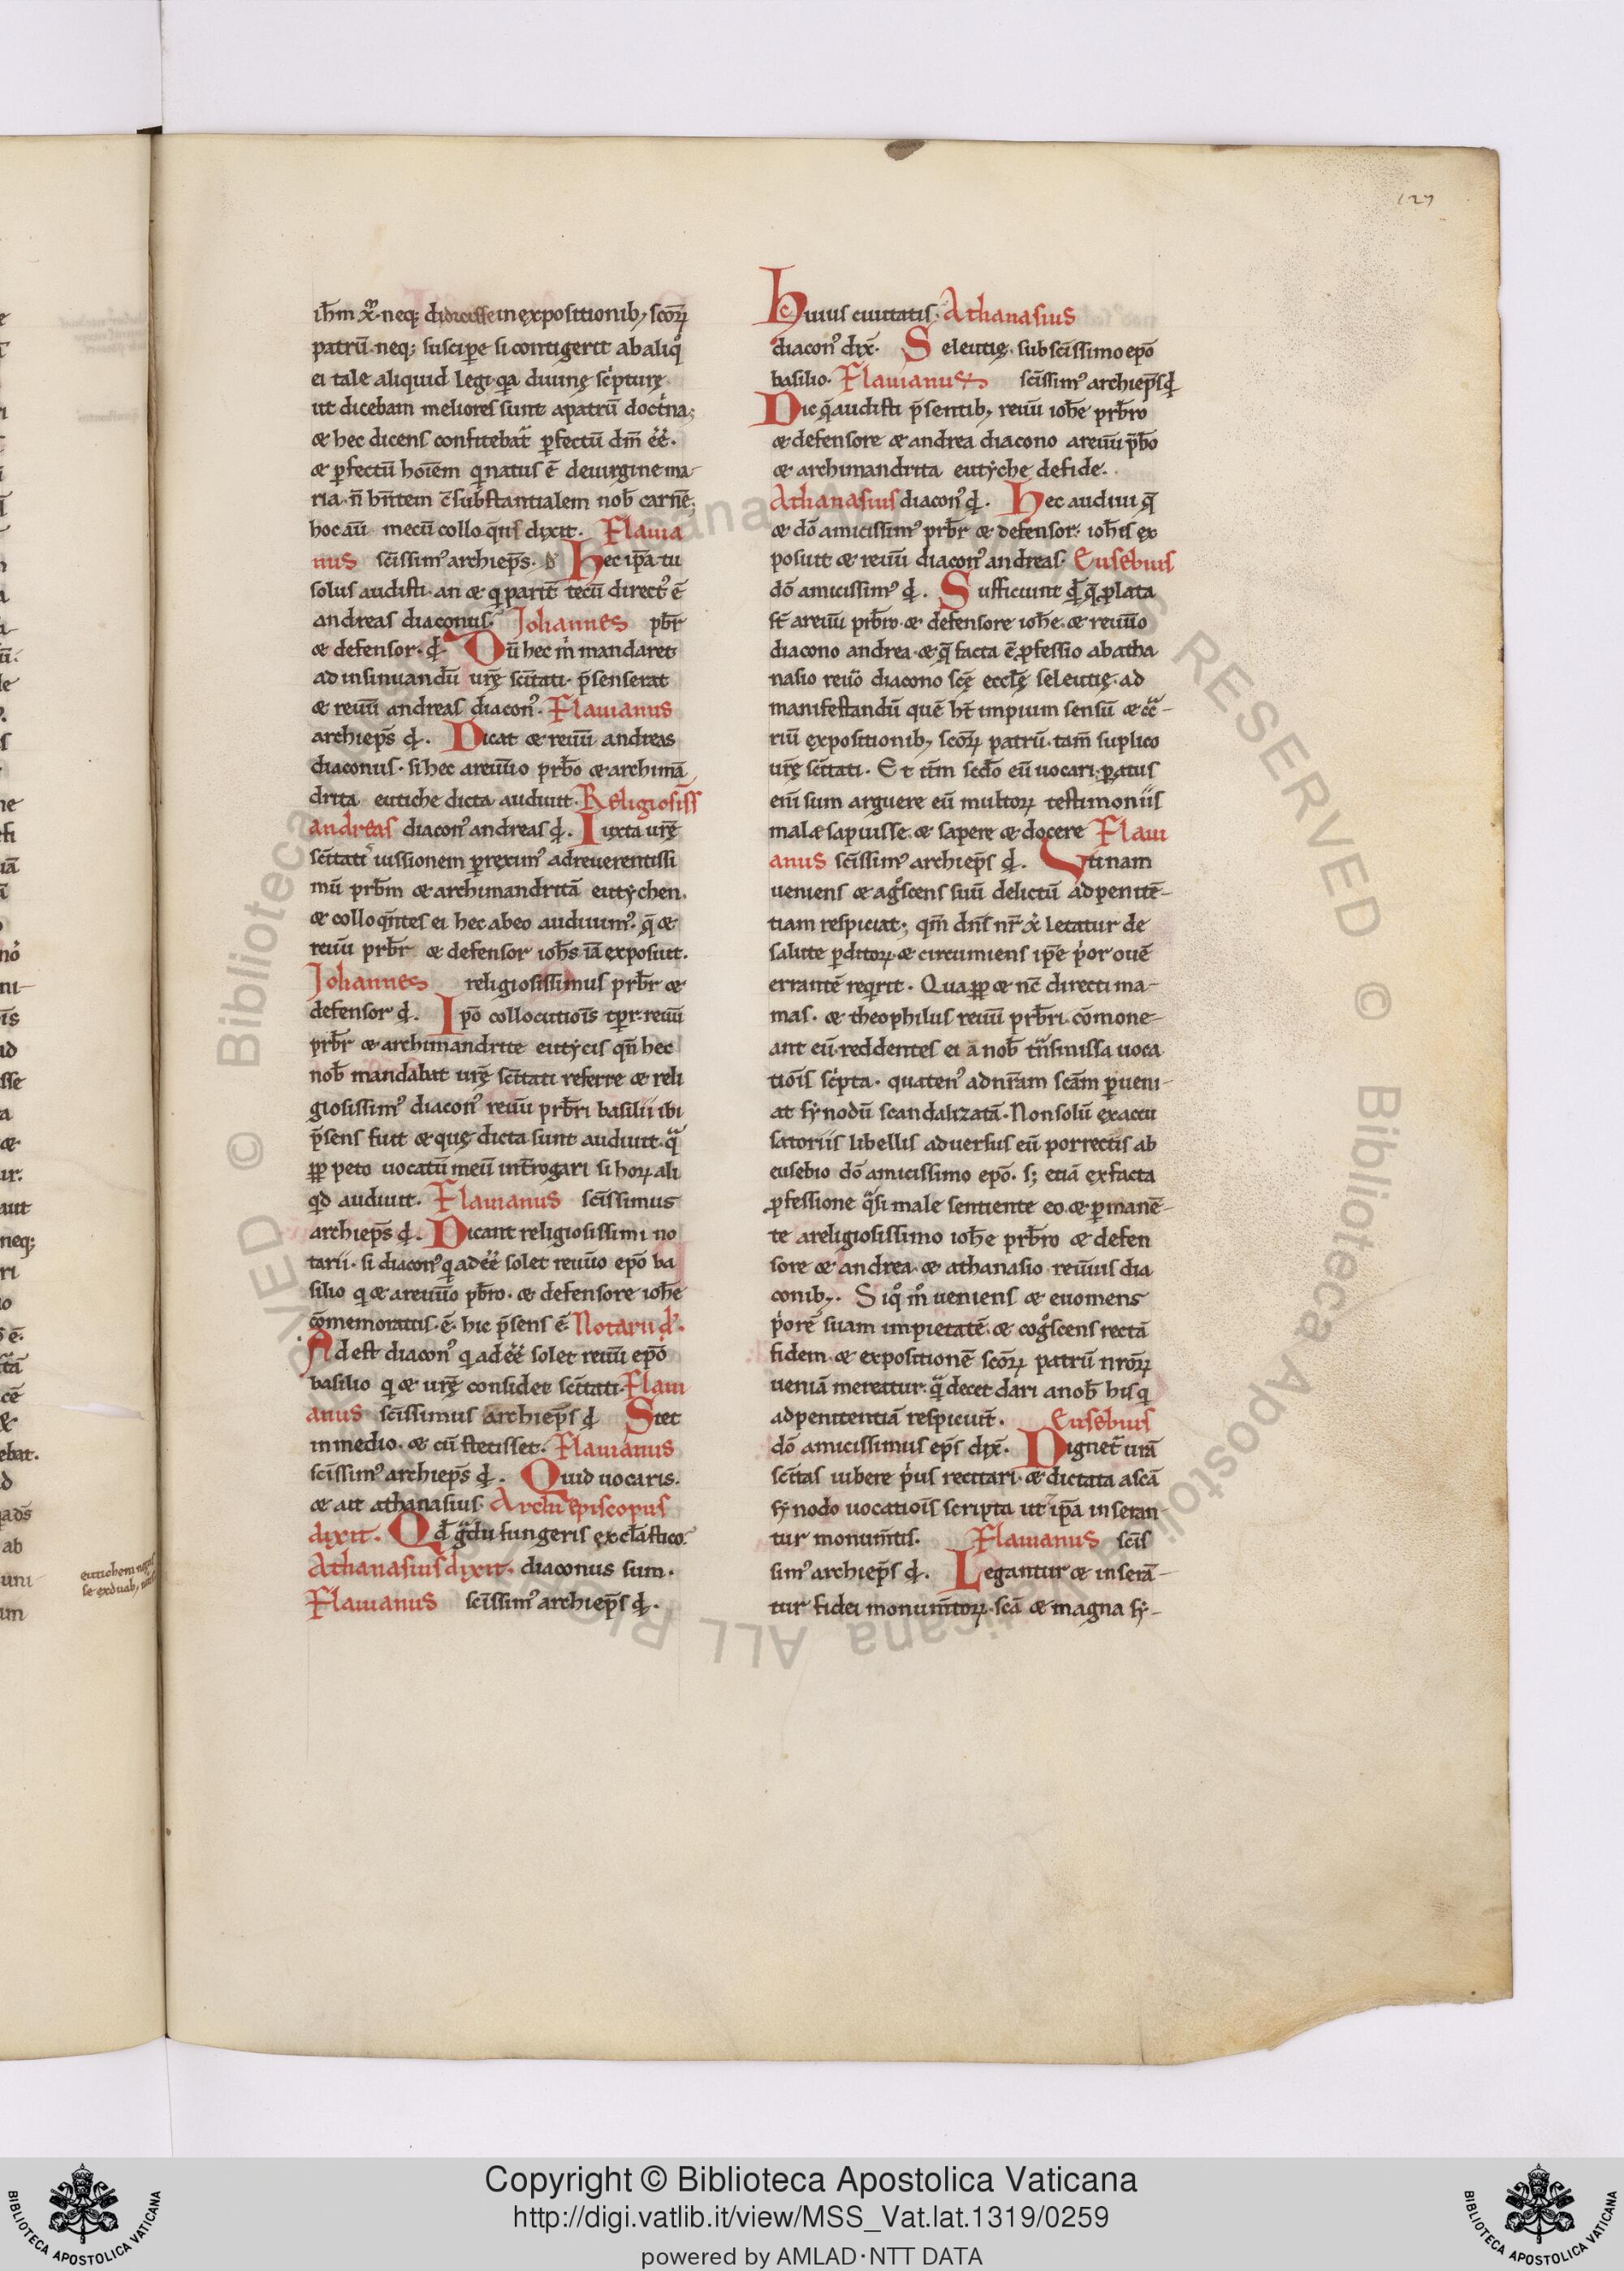 127
ih̄m xp̄m. neq; didicisse in expositionib; scōꝝ
patrū. neq; suscipe si contigerit ab aliqͦ
ei tale aliquid legi. qa diuinę scpturę
ut dicebam meliores sunt a patrū doctina;
æ hec dicens confitebat pfectū dm̄ ēē.
æ pfectū hoīem qi natus ē de uirgine ma-
ria. n̄ hn̄tem c̄substantialem nob̄ carnē;
hoc aū mecū colloqn̄s dixit. Flauia
nus scīssim' archiep̄s. d̄ Hec ip̄a tu
solus audisti. an æ qi parit tecū direct' ē
andreas diaconus. Johannes pb̄r
æ defensor. qͥ. Dū hec m̄ mandaret
ad insinuandū urę scīitati. p̄senserat
æ reuū andreas diacon'. Flauianus
archiep̄s d̄. Dicat æ reuū andreas
diaconus. si hec a reuūo prb̄o æ archimā
drita eutiche dicta audiuit. Religosiss
andreas diacon' andreas d̄. Iuxta urę
scītatis iussionem prexim' ad reuerentissi
mū prb̄m æ archimandritā eutychen.
æ colloqn̄tes ei hec ab eo audiuim'. q̄ æ
reuū prb̄r æ defensor ioh̄s iā exposuit.
Johannes religiosissimus prb̄r æ
defensor d̄. Ipō collocutiōis tpr. reuū
prb̄r æ archimandrite eutycis qn̄ hec
nob̄ mandabat urę scītati referre æ reli
giosissim' diacon' reuū prb̄ri basilii ibi
p̄sens fuit æ quę dicta sunt audiuit. qa
pp peto uocatū meū int̄rogari si hoꝝ ali
qd audiuit. Flauianus scīssimus
archiep̄s d̄. Dicant religiosissimi no
tarii. si diacon' qi adēē solet reuūo epō ba
silio qi æ a reuūo pb̄ro. æ defensore ioh̄e
cōmemoratis. ē. hic p̄sens ē. Notarii d̄.
Adest diacon' qi adēē solet reuū epō
basilio qi æ urę considet scītati. Flaui
anus scīssimus archiep̄s d̄ Stet
in medio. æ cū stetisset. Flauianus
scīssim' archiep̄s d̄. Quid uocaris.
æ ait athanasius. Archiepiscopus
dixit. Qd̄ gdu fungeris ęxclastico.
Athanasius dixit. diaconus sum.
Flauianus scīssim' archiep̄s d̄.
Huius ciuitatis. Athanasius
diacon' dix̄. Seleutię. sub scīssimo epō
basilio. Flauianus scīssim' archiep̄s d̄
Dic q̄ audisti p̄sentib; reuū ioh̄e prb̄ro
æ defensore æ andrea diacono a reuū pb̄o
æ archimandrita eutyche de fide.
Athanasius diacon' d̄. Hec audiui q̄
æ dō amicissim' prb̄r æ defensor. ioh̄is ex
posuit æ reuū diacon' andreas. Eusebius
dō amicissim' d̄. Sufficiunt qd̄ q̄ plata
st̄ a reuū prb̄ro. æ defensore ioh̄e. æ reuūo
diacono andrea. æ q̄ facta ē pfessio ab atha
nasio reuō diacono scę eccłę seleutię. ad
manifestandū quē ht̄ impium sensū æ ct̄ra-
riū expositionib; scoꝝ patrū. tam̄ suplico
urę scītati. Et tm̄ scdo eū uocari. patus
eni sum arguere eū multoꝝ testimoniis
malæ sapuisse. æ sapere æ docere Flaui
anus scīssim' archiep̄s d̄. Vtinam
ueniens æ agͦscens suū delictū ad penitē-
tiam respiciat; qm̄ dn̄s nr̄ xc̄ letatur de
salute pditoꝝ. æ circumiens ip̄e pior ouē
errantē reqirit. Qua pp æ nc̄ directi ma-
mas. æ theophilus reuū prb̄ri. cōmone-
ant eū. reddentes ei a nob̄ tn̄smissa uoca
tiōis scpta. quaten' ad nr̄am scām pueni-
at synodū scandalizatā. Non solū ęxaccu
satoriis libellis aduersus eū porrectis ab
eusebio dō amicissimo epō. s; etiā ex facta
pfessione qasi male sentiente eo. æ pmanē-
te a religiosissimo ioh̄e prb̄ro æ defen
sore æ andrea. æ athanasio reuūis dia
conib;. Siqͦ mͦ ueniens æ euomens
piorē suam impietatē. æ cogͦscens rectā
fidem. æ expositionē scoꝝ patrū nroꝝ
ueniā mereatur. qa decet dari a nob̄ his qi
ad penitentiā respiciūt. Eusebius
dō amicissimus ep̄s dix̄. Dignet urā
scītas iubere pius recitari. æ dictata a scā
synodo uocatiōis scripta ut ip̄a inseran
tur monum̄tis. Flauianus scīs
sim' archiep̄s d̄. Legantur æ inserā-
tur fidei monum̄toꝝ. scā æ magna sy-
Copyright © Biblioteca Apostolica Vaticana
http://digi.vatlib.it/view/MSS_Vat.lat.1319/0259
powered by AMLAD·NTT DATA